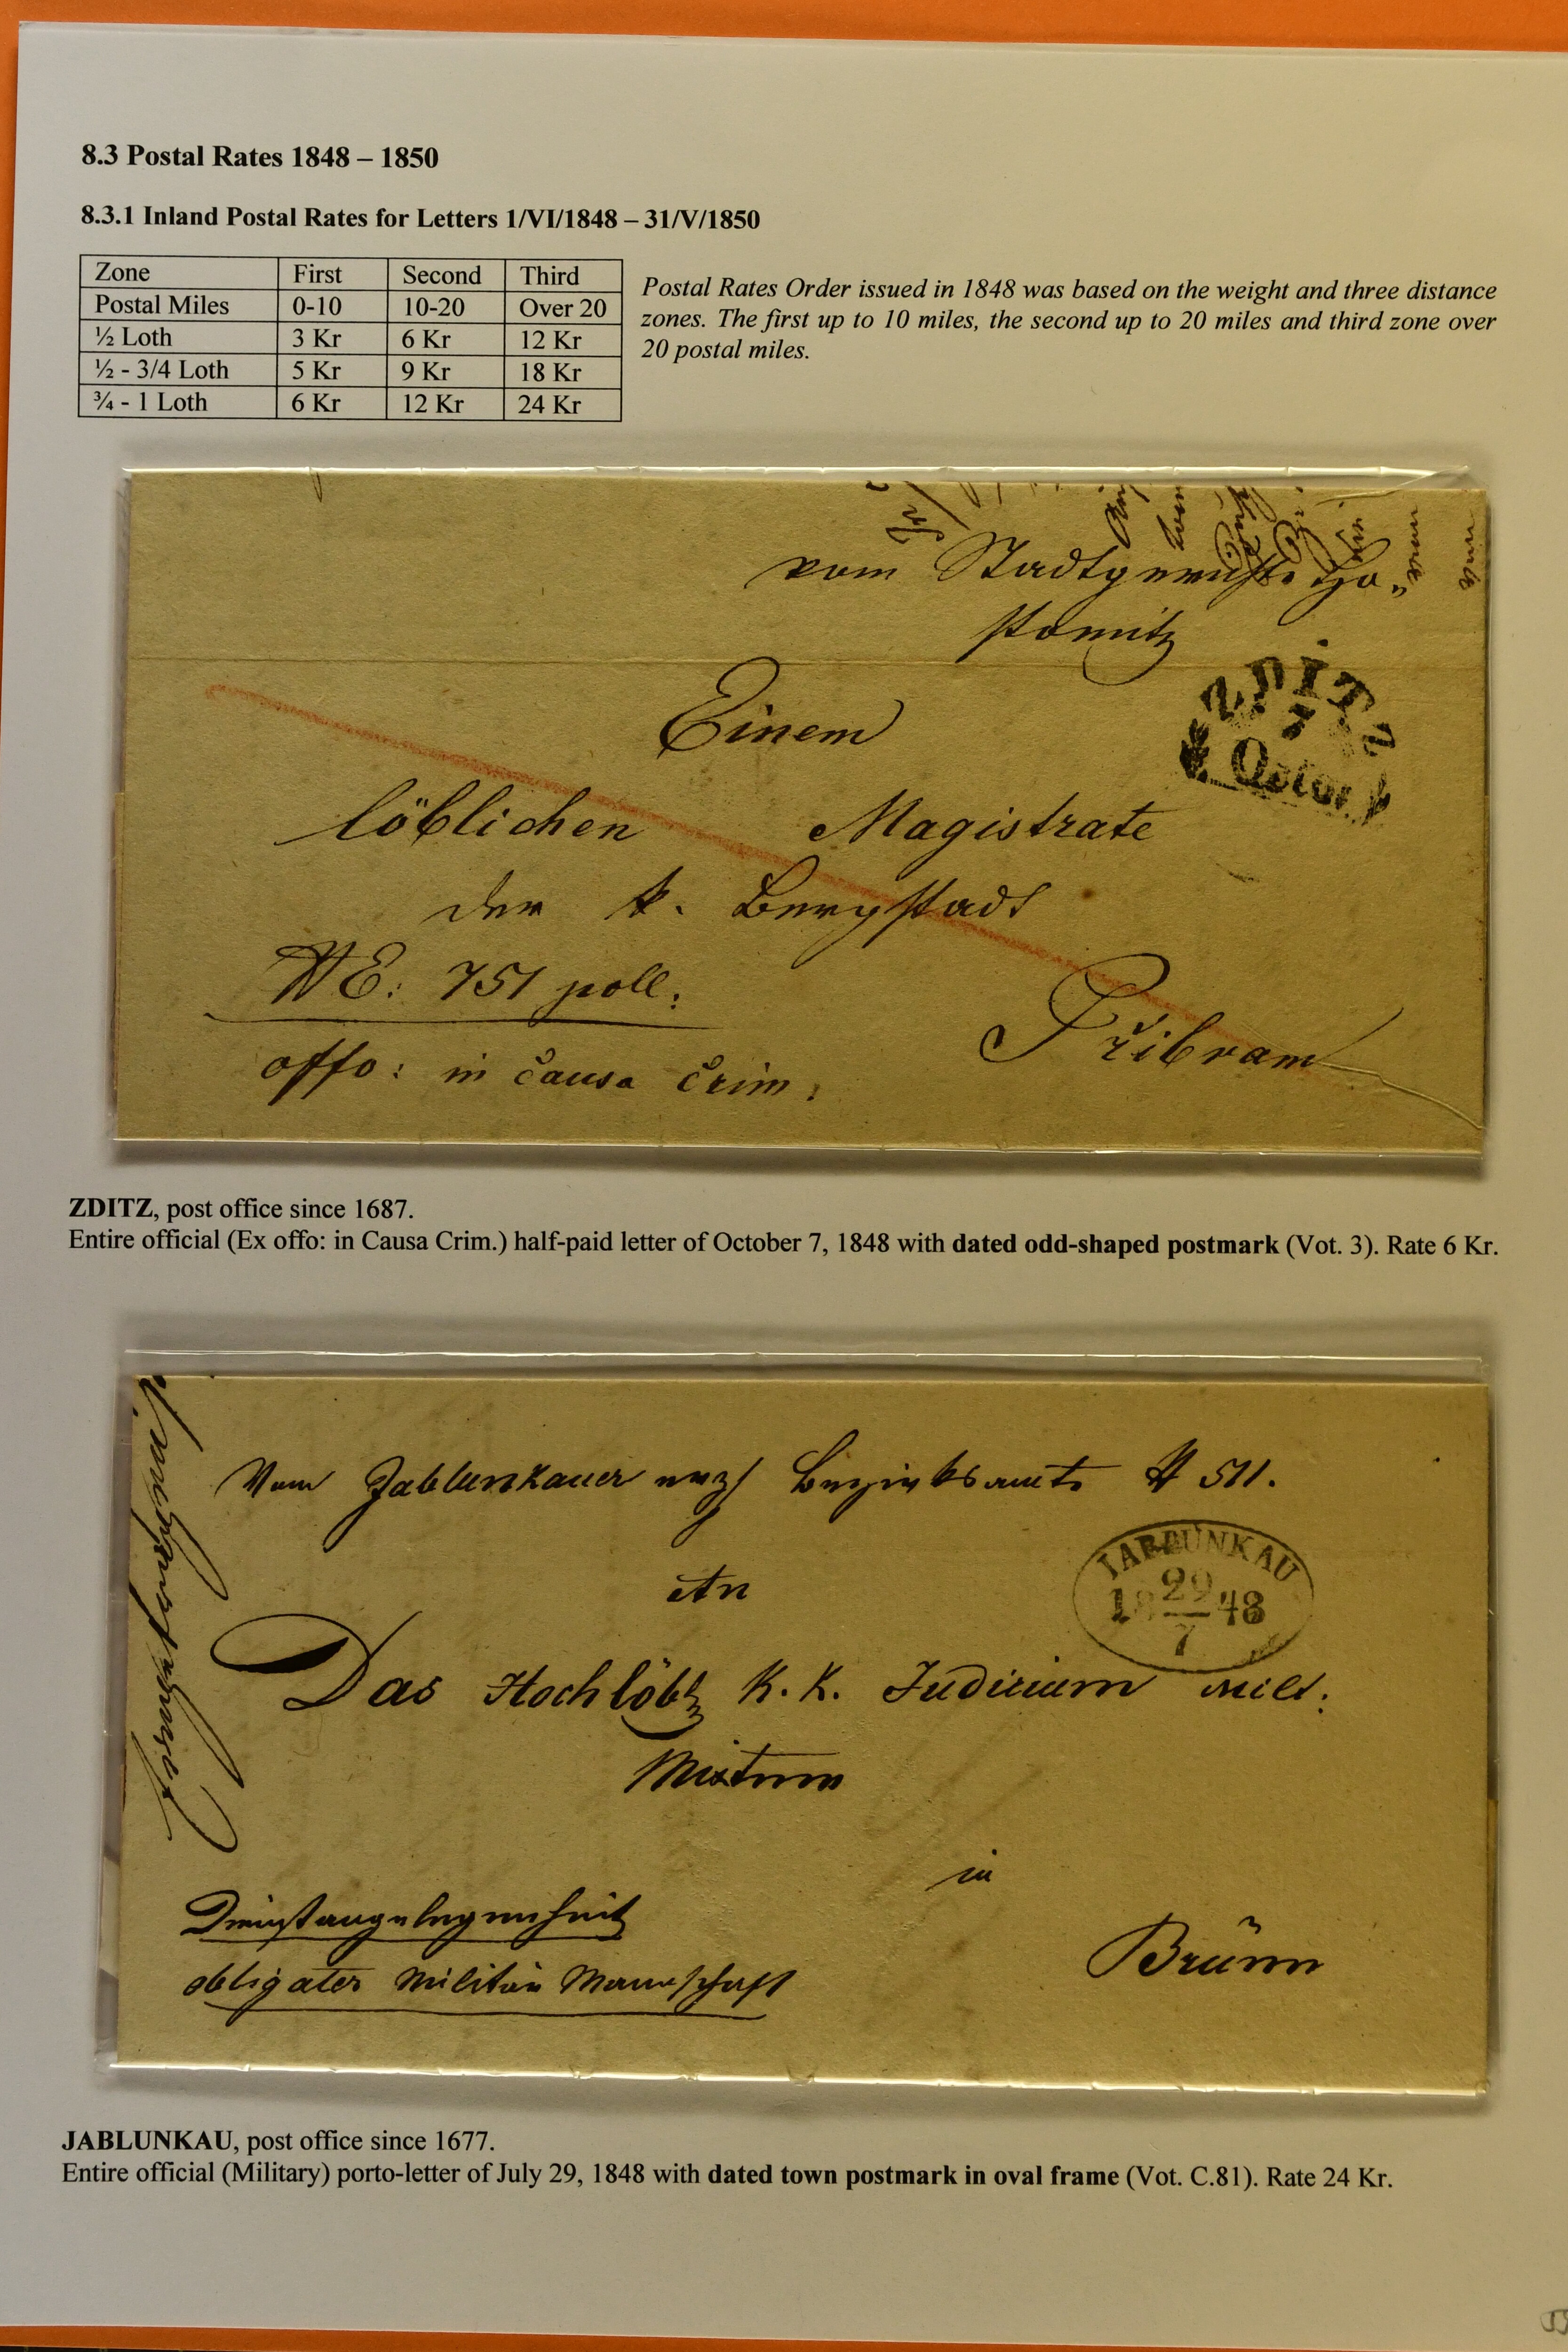 8.3 Postal Rates 1848 – 1850
8.3.1 Inland Postal Rates for Letters 1/VI/1848 – 31/V/1850
Zone First Second Third
Postal Miles 0-10 10-20 Over 20
½ Loth 3 Kr 6 Kr 12 Kr
½ - 3/4 Loth 5 Kr 9 Kr 18 Kr
¾ - 1 Loth 6 Kr 12 Kr 24 Kr
Postal Rates Order issued in 1848 was based on the weight and three distance
zones. The first up to 10 miles, the second up to 20 miles and third zone over
20 postal miles.
vom Stadtgerichte Ho-
stomitz
ZDITZ
7
Octor
Einem
löblichen Magistrate
der k. Bergstadt
NE: 751 poll.
Přibram
offo: in Causa Crim:
ZDITZ, post office since 1687.
Entire official (Ex offo: in Causa Crim.) half-paid letter of October 7, 1848 with dated odd-shaped postmark (Vot. 3). Rate 6 Kr.
Vom Jablunkauer Bezirksamte N 511.
An
JABLUNKAU
29
1848
7
Das Hochlöbl K. K. Judicium mil:
Mixtum
in
Brünn
Dienstangelegenheit
obligater Militär Mannschaft
JABLUNKAU, post office since 1677.
Entire official (Military) porto-letter of July 29, 1848 with dated town postmark in oval frame (Vot. C.81). Rate 24 Kr.